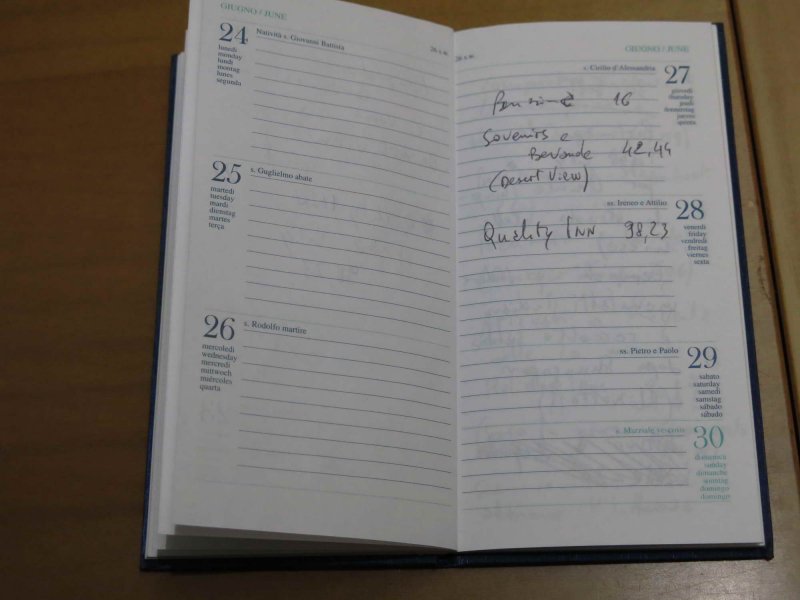 GIUGNO / JUNE
24
Natività s. Giovanni Battista
26 s.m.
lunedì
monday
lundi
montag
lunes
segunda
25
s. Guglielmo abate
martedì
tuesday
mardi
dienstag
martes
terça
26
s. Rodolfo martire
mercoledì
wednesday
mercredi
mittwoch
miércoles
quarta
GIUGNO / JUNE
26 s.m.
s. Cirillo d'Alessandria
27
giovedì
thursday
jeudi
donnerstag
jueves
quinta
16
Sovenirs e
Bevande 42,44
(Desert View)
ss. Ireneo e Attilio
28
venerdì
friday
vendredi
freitag
viernes
sexta
Quality Inn 98,23
ss. Pietro e Paolo
29
sabato
saturday
samedi
samstag
sábado
sábado
s. Marziale vescovo
30
domenica
sunday
dimanche
sonntag
domingo
domingo